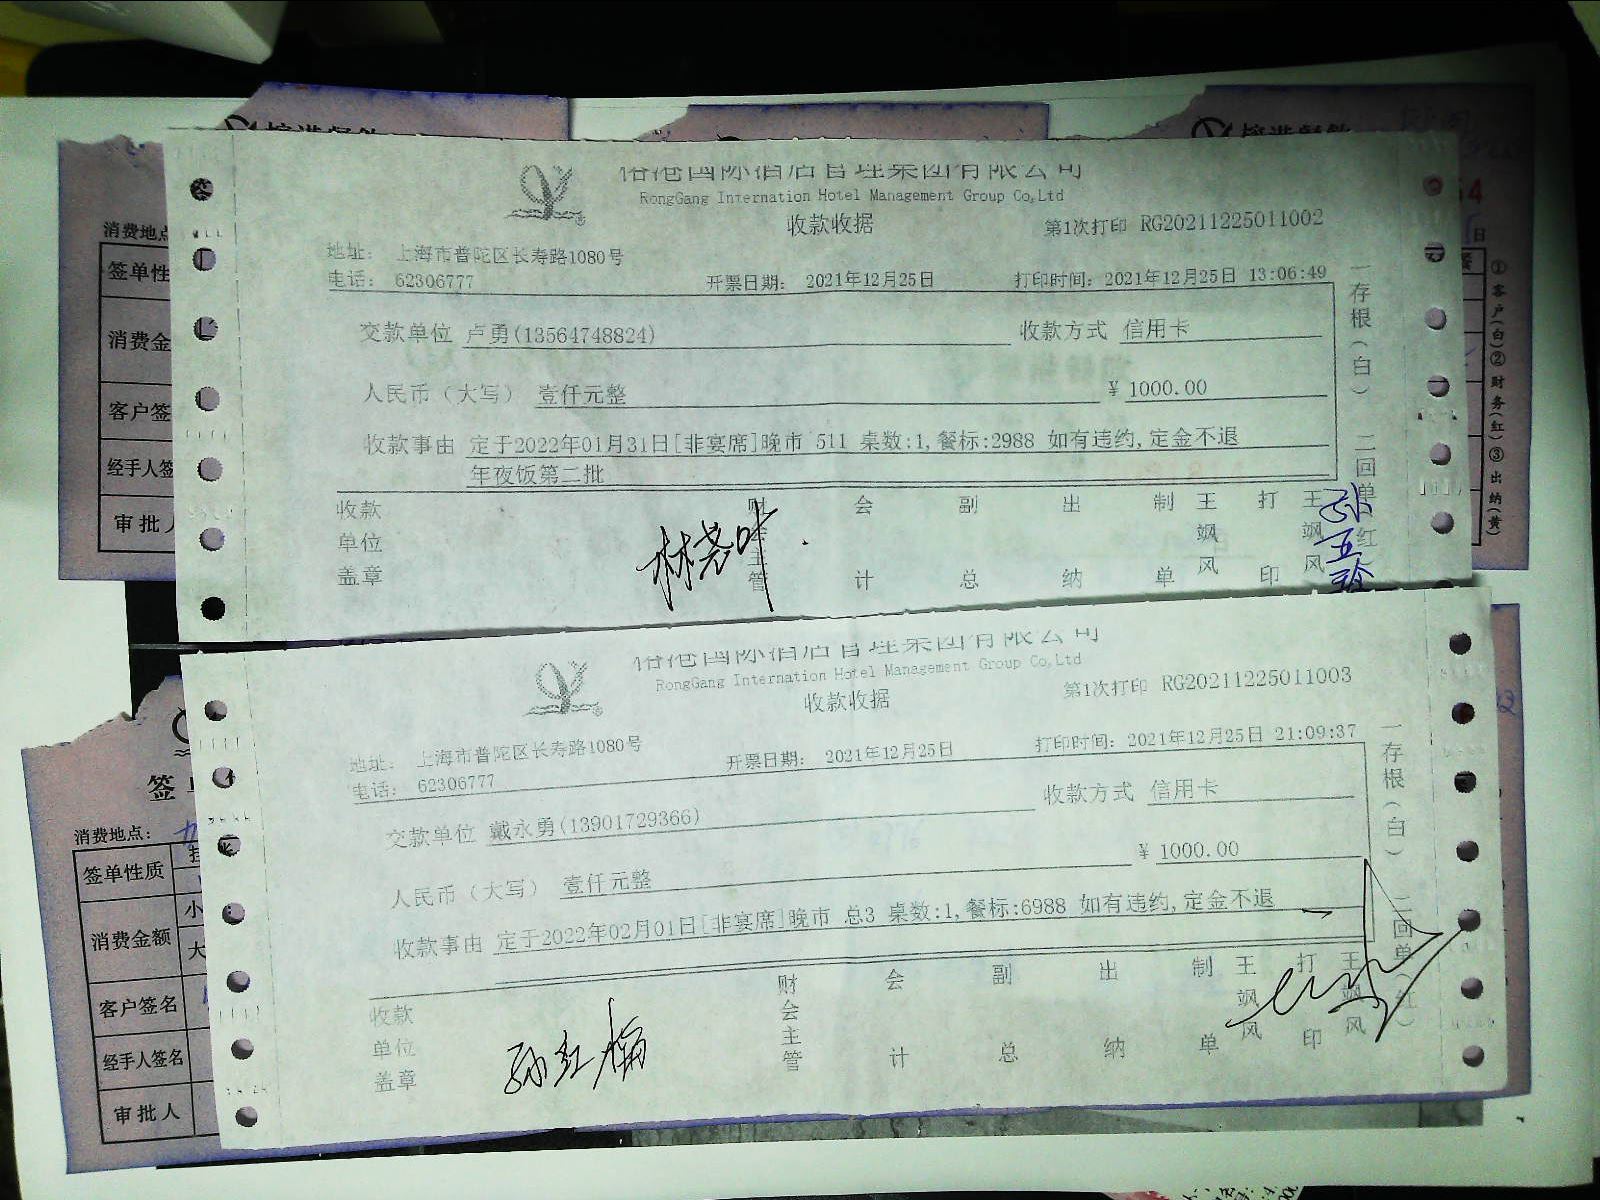 国际酒店管理集团有限公司
RongGang Internation Hotel Management Group Co,Ltd
收款收据
第1次打印 RG20211225011002
地址: 上海市普陀区长寿路1080号
电话: 62306777
开票日期: 2021年12月25日
打印时间: 2021年12月25日 13:06:49
交款单位 卢勇(13564748824)
收款方式 信用卡
人民币(大写) 壹仟元整
¥ 1000.00
收款事由 定于2022年01月31日[非宴席]晚市 511 桌数:1,餐标:2988 如有违约,定金不退
年夜饭第二批
收款单位盖章
财会主管
会计
副总
出纳
制单
王飒风
打印
王飒风
林尧叶
一存根(白) 二回单(红)
消费地点
签单性
消费金
客户签
经手人签
审批人
①客户(白)②财务(红)③出纳(黄)
国际酒店管理集团有限公司
RongGang Internation Hotel Management Group Co,Ltd
收款收据
第1次打印 RG20211225011003
地址: 上海市普陀区长寿路1080号
电话: 62306777
开票日期: 2021年12月25日
打印时间: 2021年12月25日 21:09:37
交款单位 戴永勇(13901729366)
收款方式 信用卡
人民币(大写) 壹仟元整
¥ 1000.00
收款事由 定于2022年02月01日[非宴席]晚市 总3 桌数:1,餐标:6988 如有违约,定金不退
收款单位盖章
财会主管
会计
副总
出纳
制单
王飒风
打印
王飒风
孙红梅
一存根(白) 二回单(红)
消费地点:
签单性质
消费金额
小
大
客户签名
经手人签名
审批人